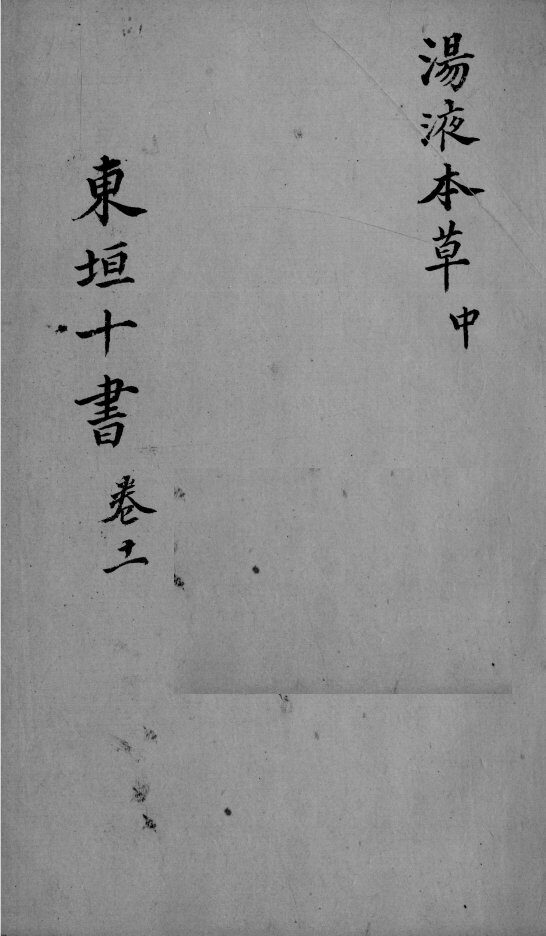 湯液本草 中
東垣十書 卷十一